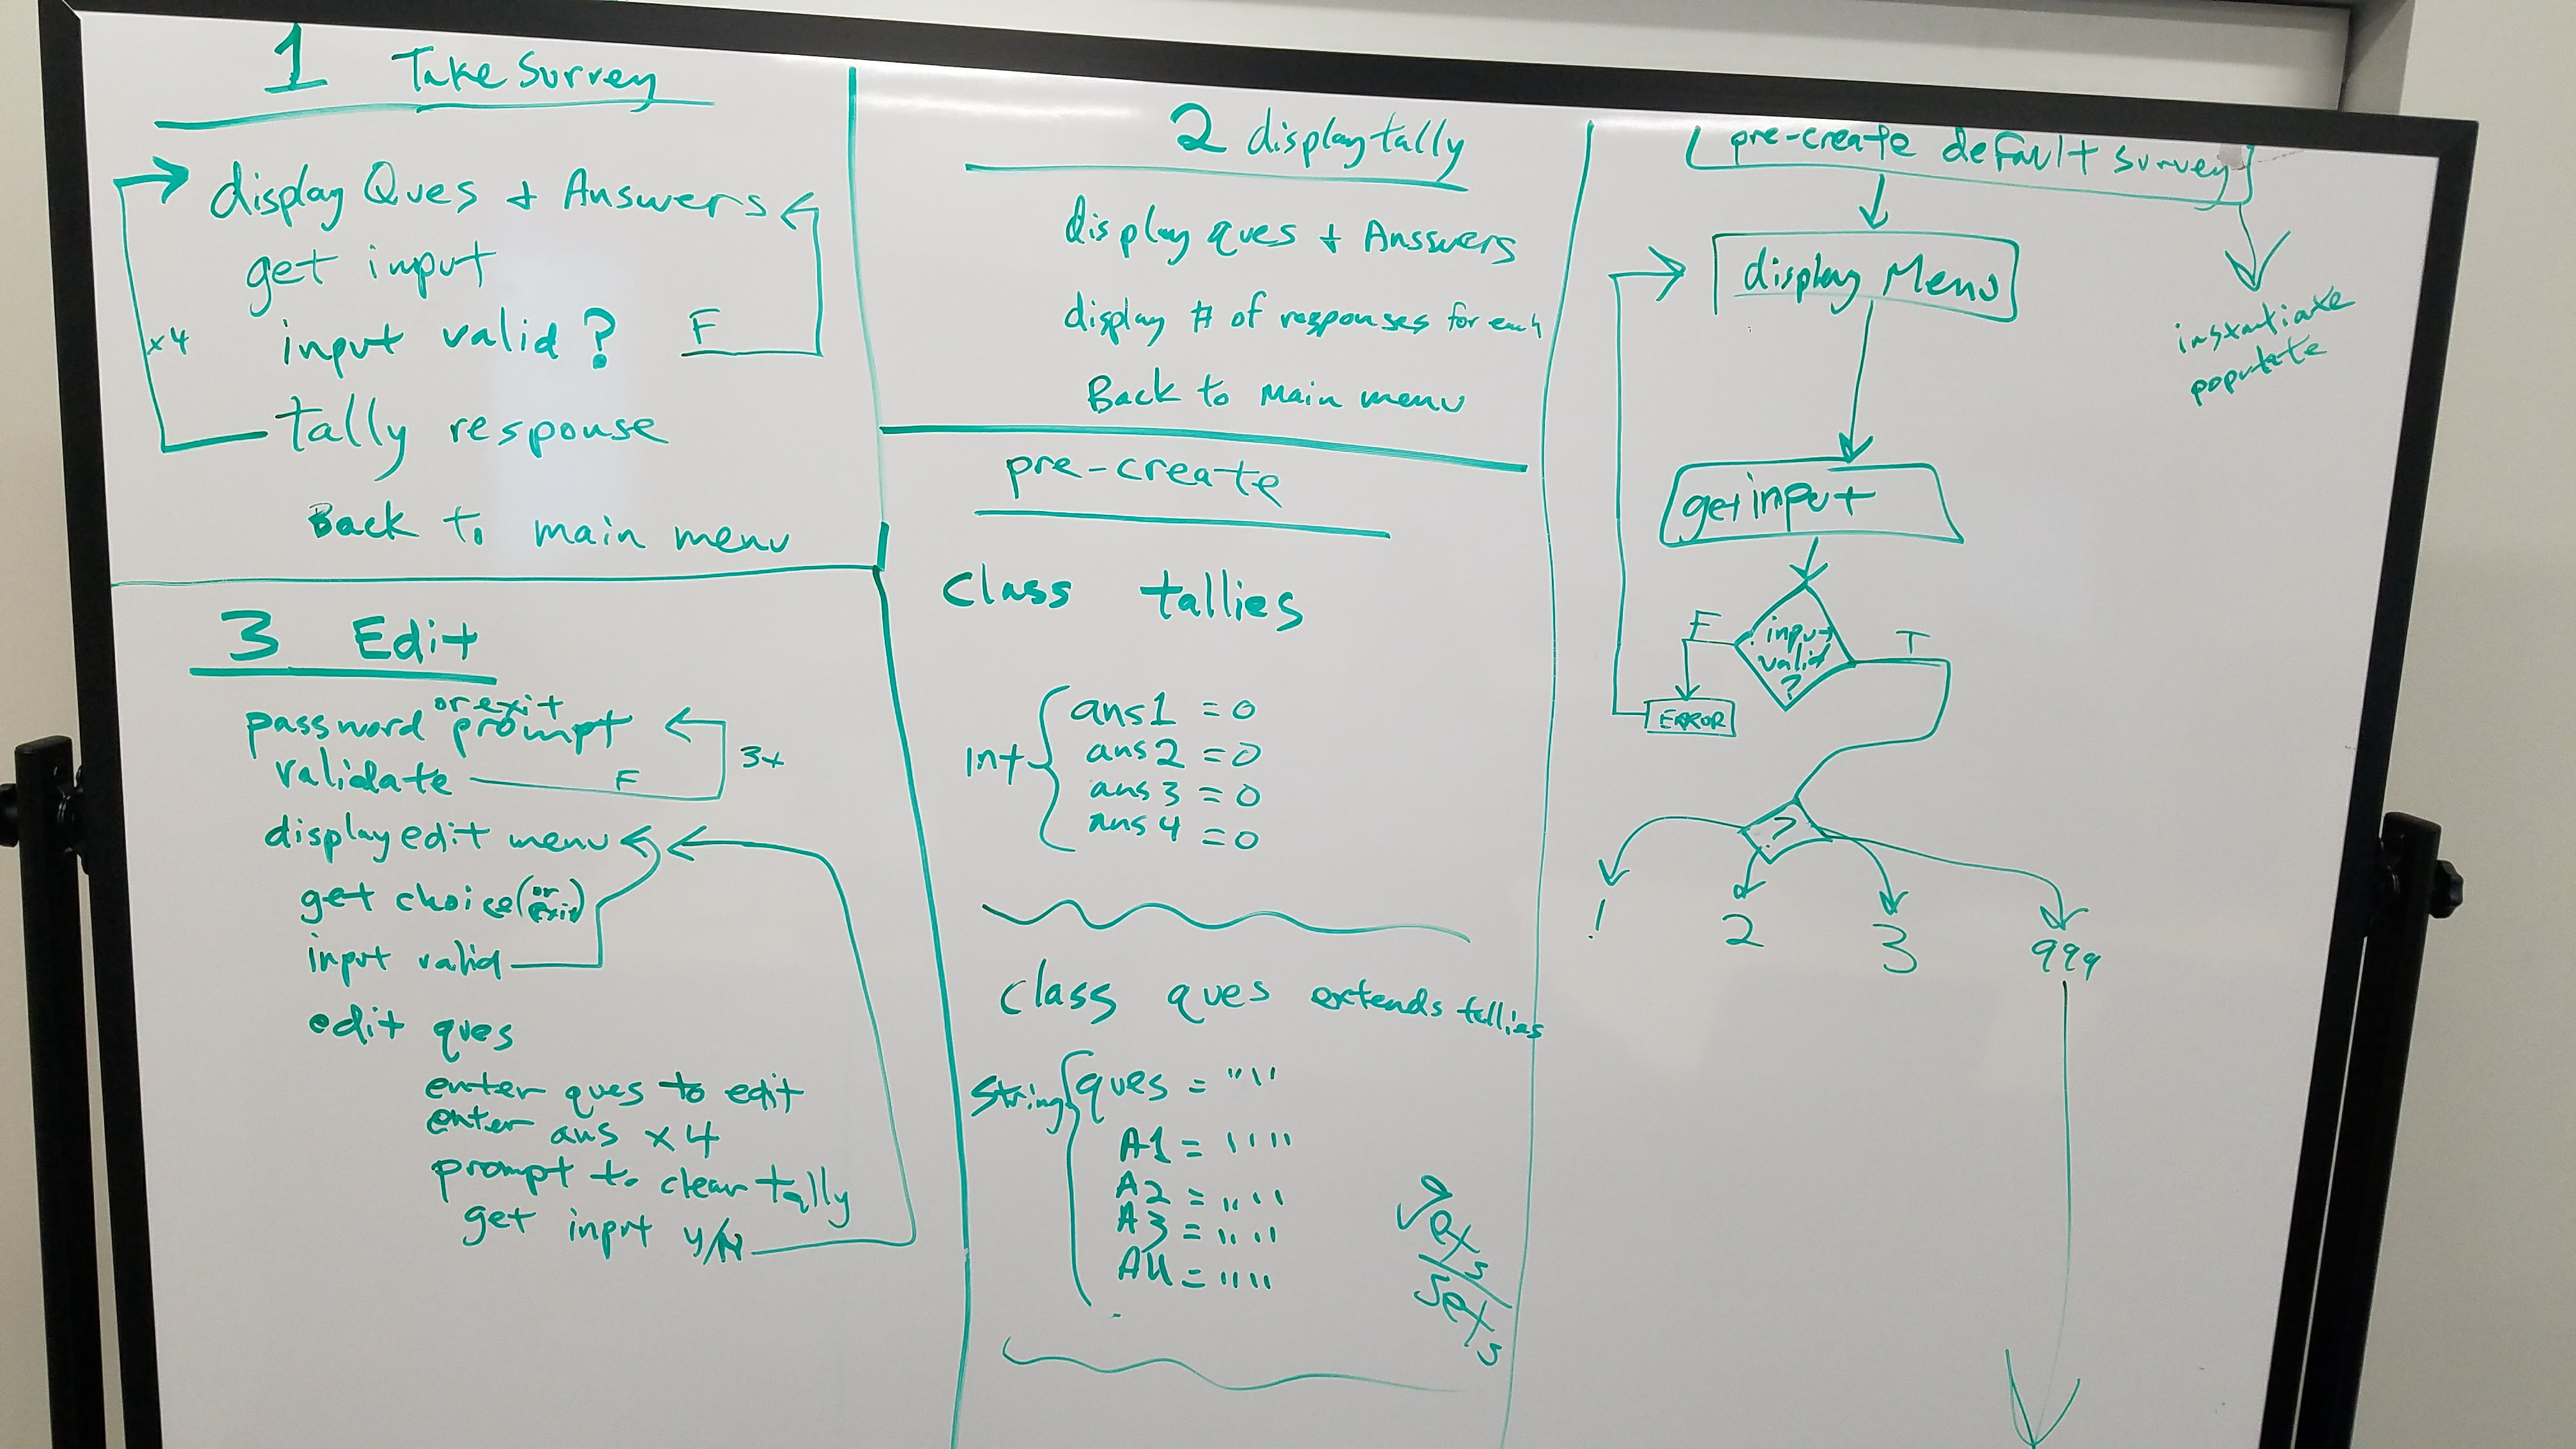 1 Take Survey
display Ques + Answers
get input
input valid? F
x4
tally response
Back to main menu
3 Edit
or exit
password prompt
validate F
3x
display edit menu
get choice (or exit)
input valid
edit ques
enter ques to edit
enter ans x 4
prompt to clear tally
get input y/N
2 display tally
display ques + Answers
display # of responses for each
Back to main menu
pre-create
Class tallies
Int
ans1 = 0
ans2 = 0
ans3 = 0
ans4 = 0
class ques extends tallies
String
ques = ""
A1 = ""
A2 = ""
A3 = ""
A4 = ""
gets
/sets
pre-create default survey
display Menu
instantiate
populate
get input
input
valid
?
F
T
ERROR
?
1
2
3
999